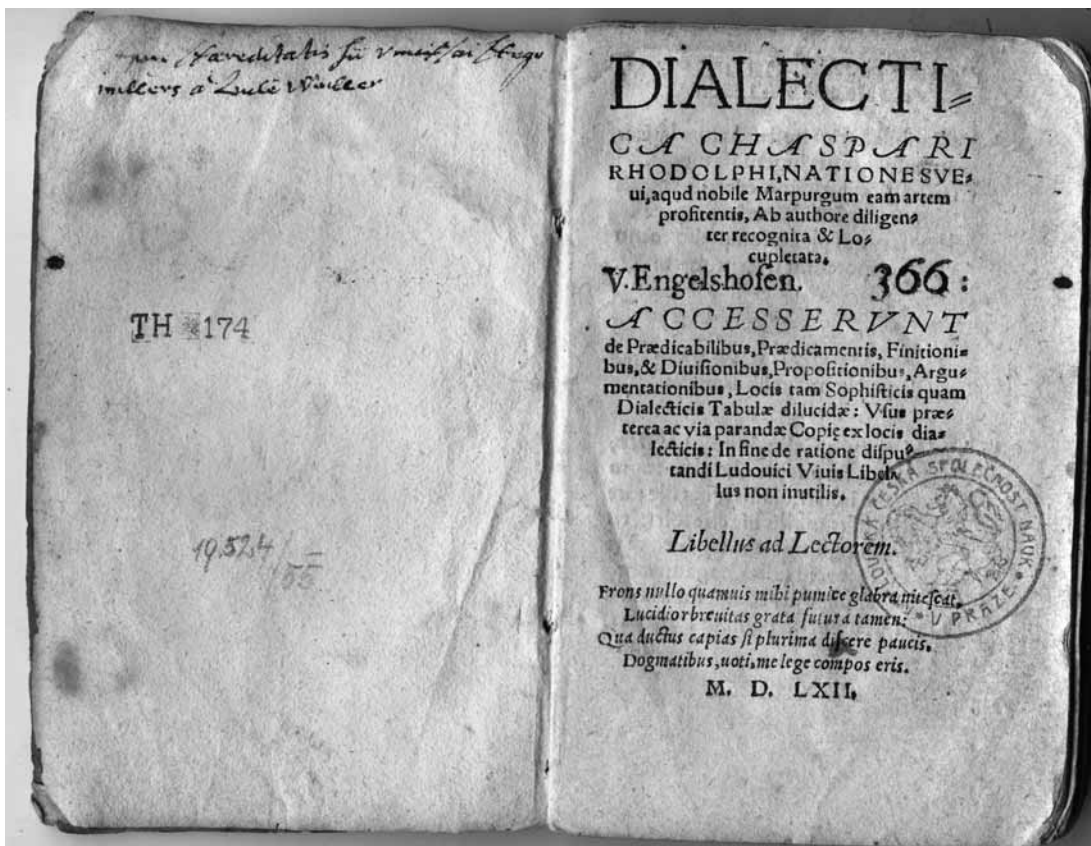 millers à
TH 174
19.524/55
DIALECTI⸗
CA CHASPARI
RHODOLPHI, NATIONE SVE⸗
ui, aqud nobile Marpurgum eam artem
profitentis, Ab authore diligen⸗
ter recognita & Lo⸗
cupletata.
V. Engelshofen. 366:
ACCESSERVNT
de Prædicabilibus, Prædicamentis, Finitioni⸗
bus, & Diuisionibus, Propositionibus, Argu⸗
mentationibus, Locis tam Sophisticis quam
Dialecticis Tabulæ dilucidæ: Vsus præ⸗
terea ac via parandæ Copię ex locis dia⸗
lecticis: In fine de ratione dispu⸗
tandi Ludouici Viuis Libel⸗
lus non inutilis.
Libellus ad Lectorem.
Frons nullo quamuis mihi pumice glabra nitescat,
Lucidior breuitas grata futura tamen:
Qua ductus capias si plurima discere paucis.
Dogmatibus, uoti, me lege compos eris.
M. D. LXII.
ČESKÁ SPOLEČNOST NAUK • V PRAZE •